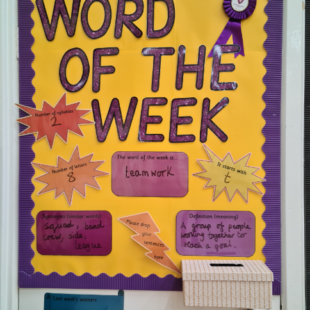 WORD
OF THE
WEEK
Number of syllables
2
Number of letters
8
The word of the week is...
teamwork
It starts with
t
(similar words)
squad, band
crew, side
league
Please drop
your
sentences
here
Definition (meaning)
A group of people
working together to
reach a goal.
Last week's winners